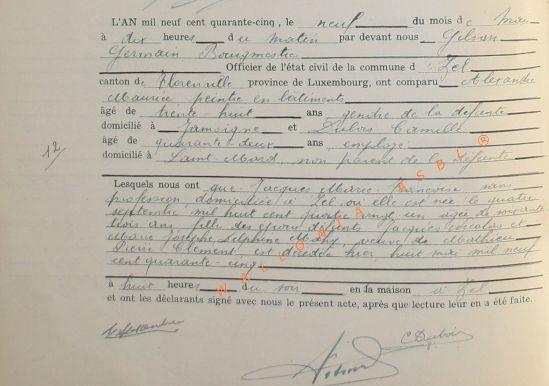 L'AN mil neuf cent quarante-cinq, le neuf du mois de Mai
à dix heures du matin par devant nous Gilson
Germain Bourgmestre
Officier de l'état civil de la commune d' Izel
canton de Florenville province de Luxembourg, ont comparu Alexandre
Maurice peintre en bâtiments
âgé de trente huit ans gendre de la défunte
domicilié à Jamoigne et Dubois Camille
âgé de quarante-deux ans, employé
12/
domicilié à Saint-Mard, non parent de la défunte
Lesquels nous ont que Jacques Marie Françoise sans
profession, domiciliée à Izel où elle est née le quatre
septembre mil huit cent quatre vingt un âgée de soixante
trois ans, fille des époux défunts Jacques Nicolas et
Marie Josèphe Delphine, veuve de Mathieu
Pierre Clément, est décédée hier huit mai mil neuf
cent quarante-cinq
à huit heures du soir en sa maison à Izel
et ont les déclarants signé avec nous le présent acte, après que lecture leur en a été faite.
WALLONIA ASBL ®
Alexandre
C Dubois